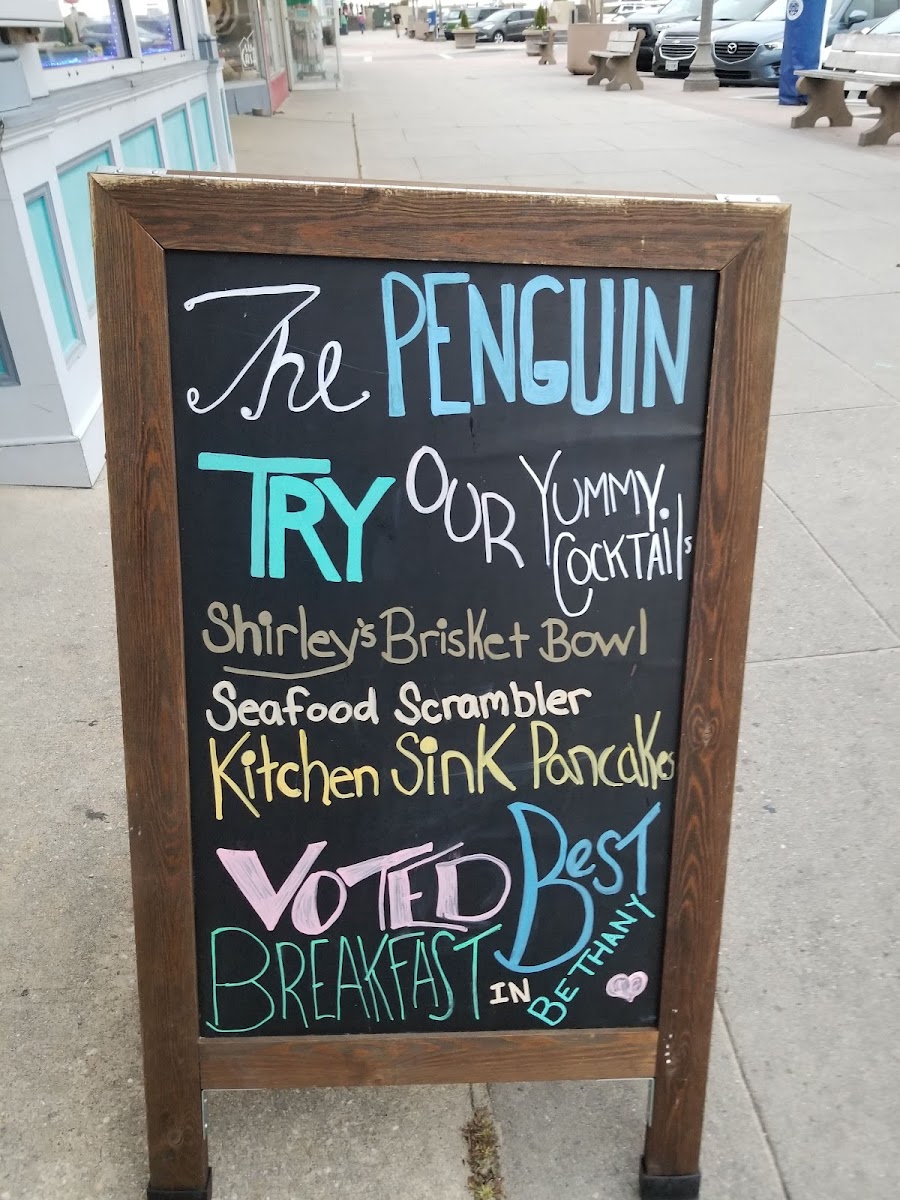 The PENGUIN
TRY OUR YUMMY
COCKTAils
Shirley's Brisket Bowl
Seafood Scrambler
Kitchen Sink Pancakes
VOTED BesT
BREAKFAST IN BETHANY